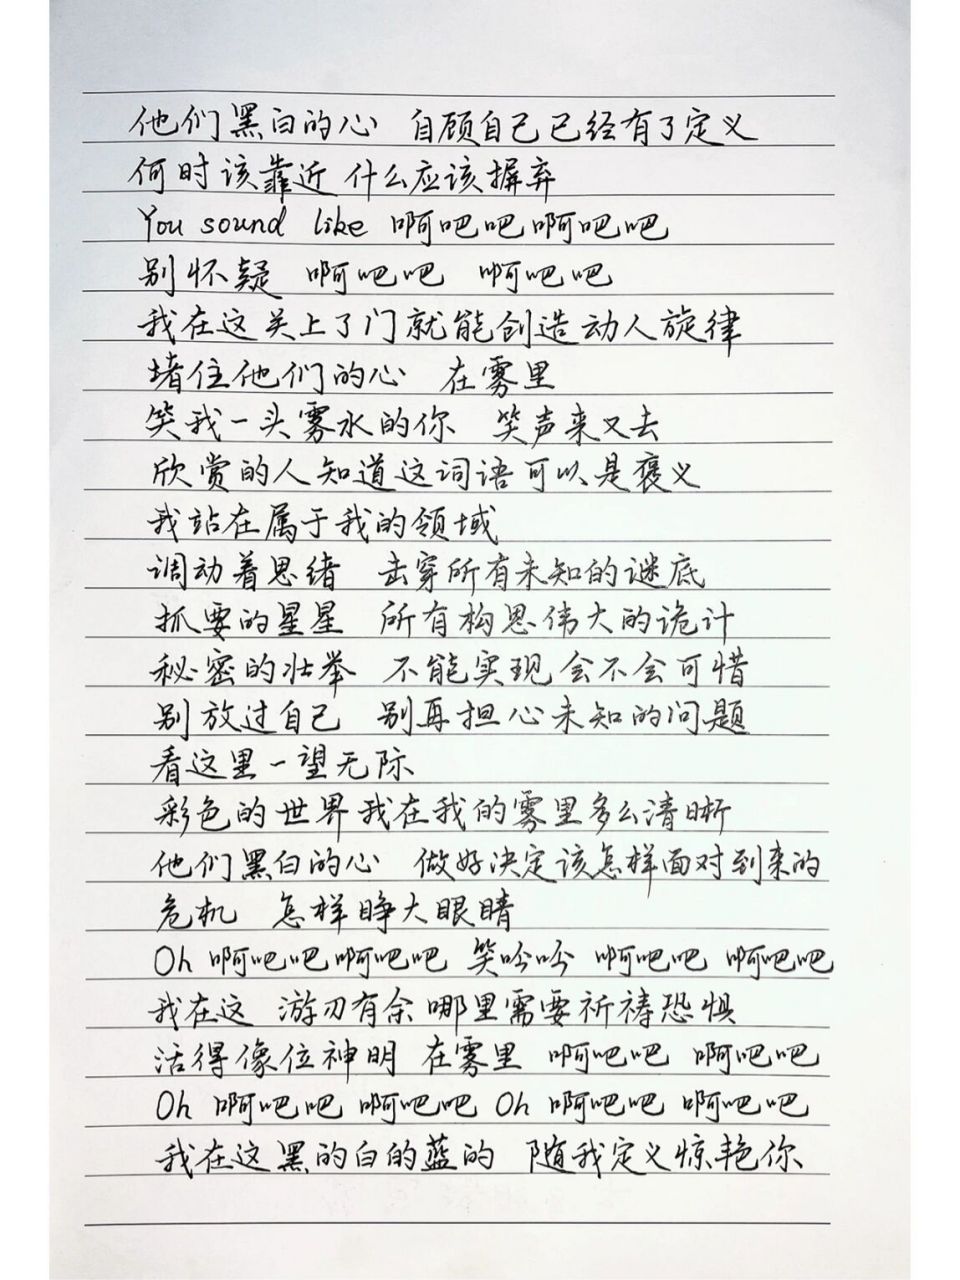 他们黑白的心 自顾自己已经有了定义
何时该靠近 什么应该摒弃
You sound like 啊吧吧啊吧吧
别怀疑 啊吧吧 啊吧吧
我在这关上了门就能创造动人旋律
堵住他们的心 在雾里
笑我一头雾水的你 笑声来又去
欣赏的人知道这词语可以是褒义
我站在属于我的领域
调动着思绪 击穿所有未知的谜底
抓耍的星星 所有构思伟大的诡计
秘密的壮举 不能实现会不会可惜
别放过自己 别再担心未知的问题
看这里一望无际
彩色的世界我在我的雾里多么清晰
他们黑白的心 做好决定该怎样面对到来的
危机 怎样睁大眼睛
Oh 啊吧吧啊吧吧 笑吟吟 啊吧吧 啊吧吧
我在这 游刃有余哪里需要祈祷恐惧
活得像位神明 在雾里 啊吧吧 啊吧吧
Oh 啊吧吧 啊吧吧 Oh 啊吧吧 啊吧吧
我在这黑的白的蓝的 随我定义惊艳你